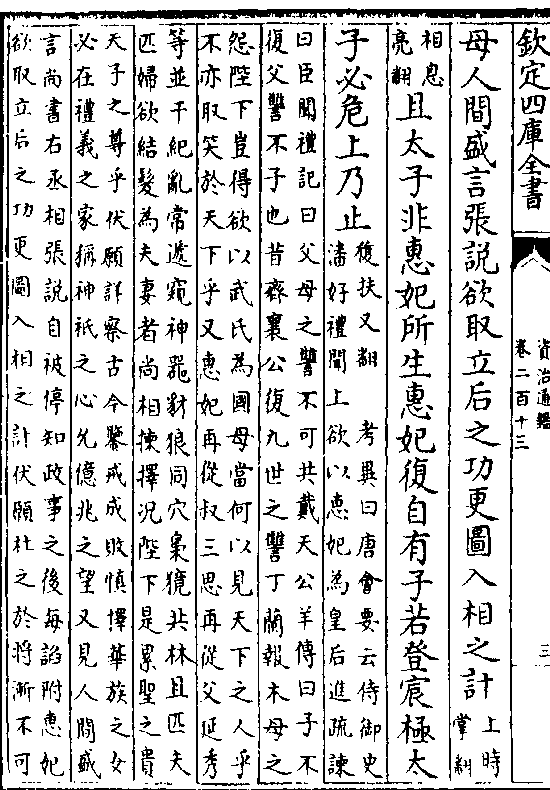 欽定四庫全書
資治通鑑
卷二百十三
三
母人間盛言張説欲取立后之功更圖入相之計上時
掌翻
相息
亮翻且太子非惠妃所生惠妃復自有子若登宸極太
子必危上乃止復扶又翻 考異曰唐會要云侍御史
潘好禮聞上欲以惠妃為皇后進疏諫
曰臣聞禮記曰父母之讐不可共戴天公羊傳曰子不
復父讐不子也昔齊襄公復九世之讐丁蘭報木母之
怨陛下豈得欲以武氏為國母當何以見天下之人乎
不亦取笑於天下乎又惠妃再從叔三思再從父延秀
等並干紀亂常遞窺神器豺狼同穴梟獍共林且匹夫
匹婦欲結髮為夫妻者尚相揀擇況陛下是累聖之貴
天子之尊乎伏願詳察古今鑒戒成敗慎擇華族之女
必在禮義之家稱神祇之心允億兆之望又見人間盛
言尚書右丞相張説自被停知政事之後每諂附惠妃
欲取立后之功更圖入相之計伏願杜之於將漸不可